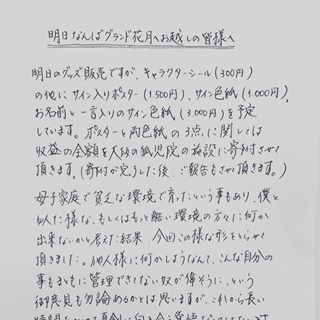 明日なんばグランド花月へお越しの皆様へ
明日のグッズ販売ですが、キャラクターシール(300円)
の他に サイン入りポスター(1.500円)、サイン色紙(1.000円)、
お名前と一言入りのサイン色紙(3.000円)を予定
しています。ポスターと両色紙の3点に関しては
収益の全額を大阪の孤児院の施設に寄付させて
頂きます。(寄付が完了した後、ご報告もさせて頂きます。)
母子家庭で貧乏な環境で育ったという事もあり、僕と
似た様な、もしくはもっと酷い環境の方々に何か
出来ないかと考えた結果、今回この様な形をとらせて
頂きました。他人様に何かしようなんて、こんな自分の
事もまともに管理できてない奴が偉そうに、という
御意見も勿論あるかとは思いますが、これから長い